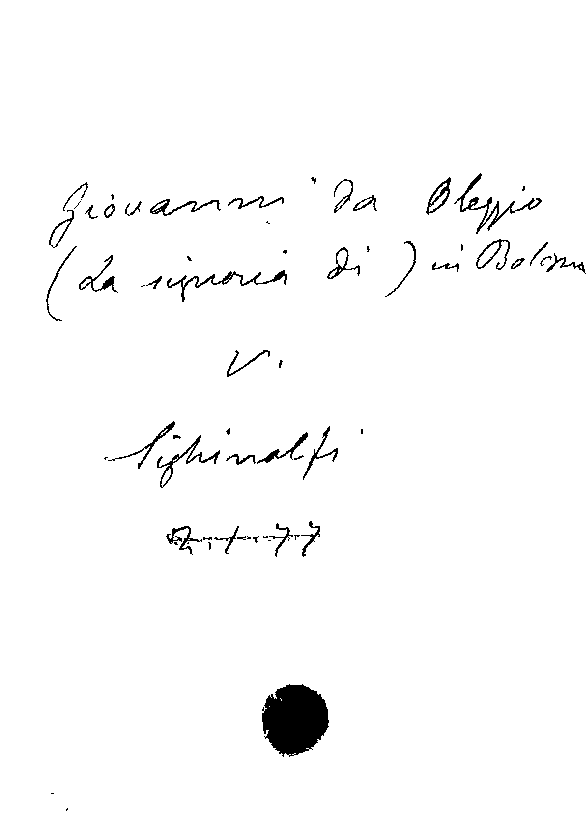 Giovanni da Oleggio
(La signoria di) in Bologna
V.
Sighinolfi